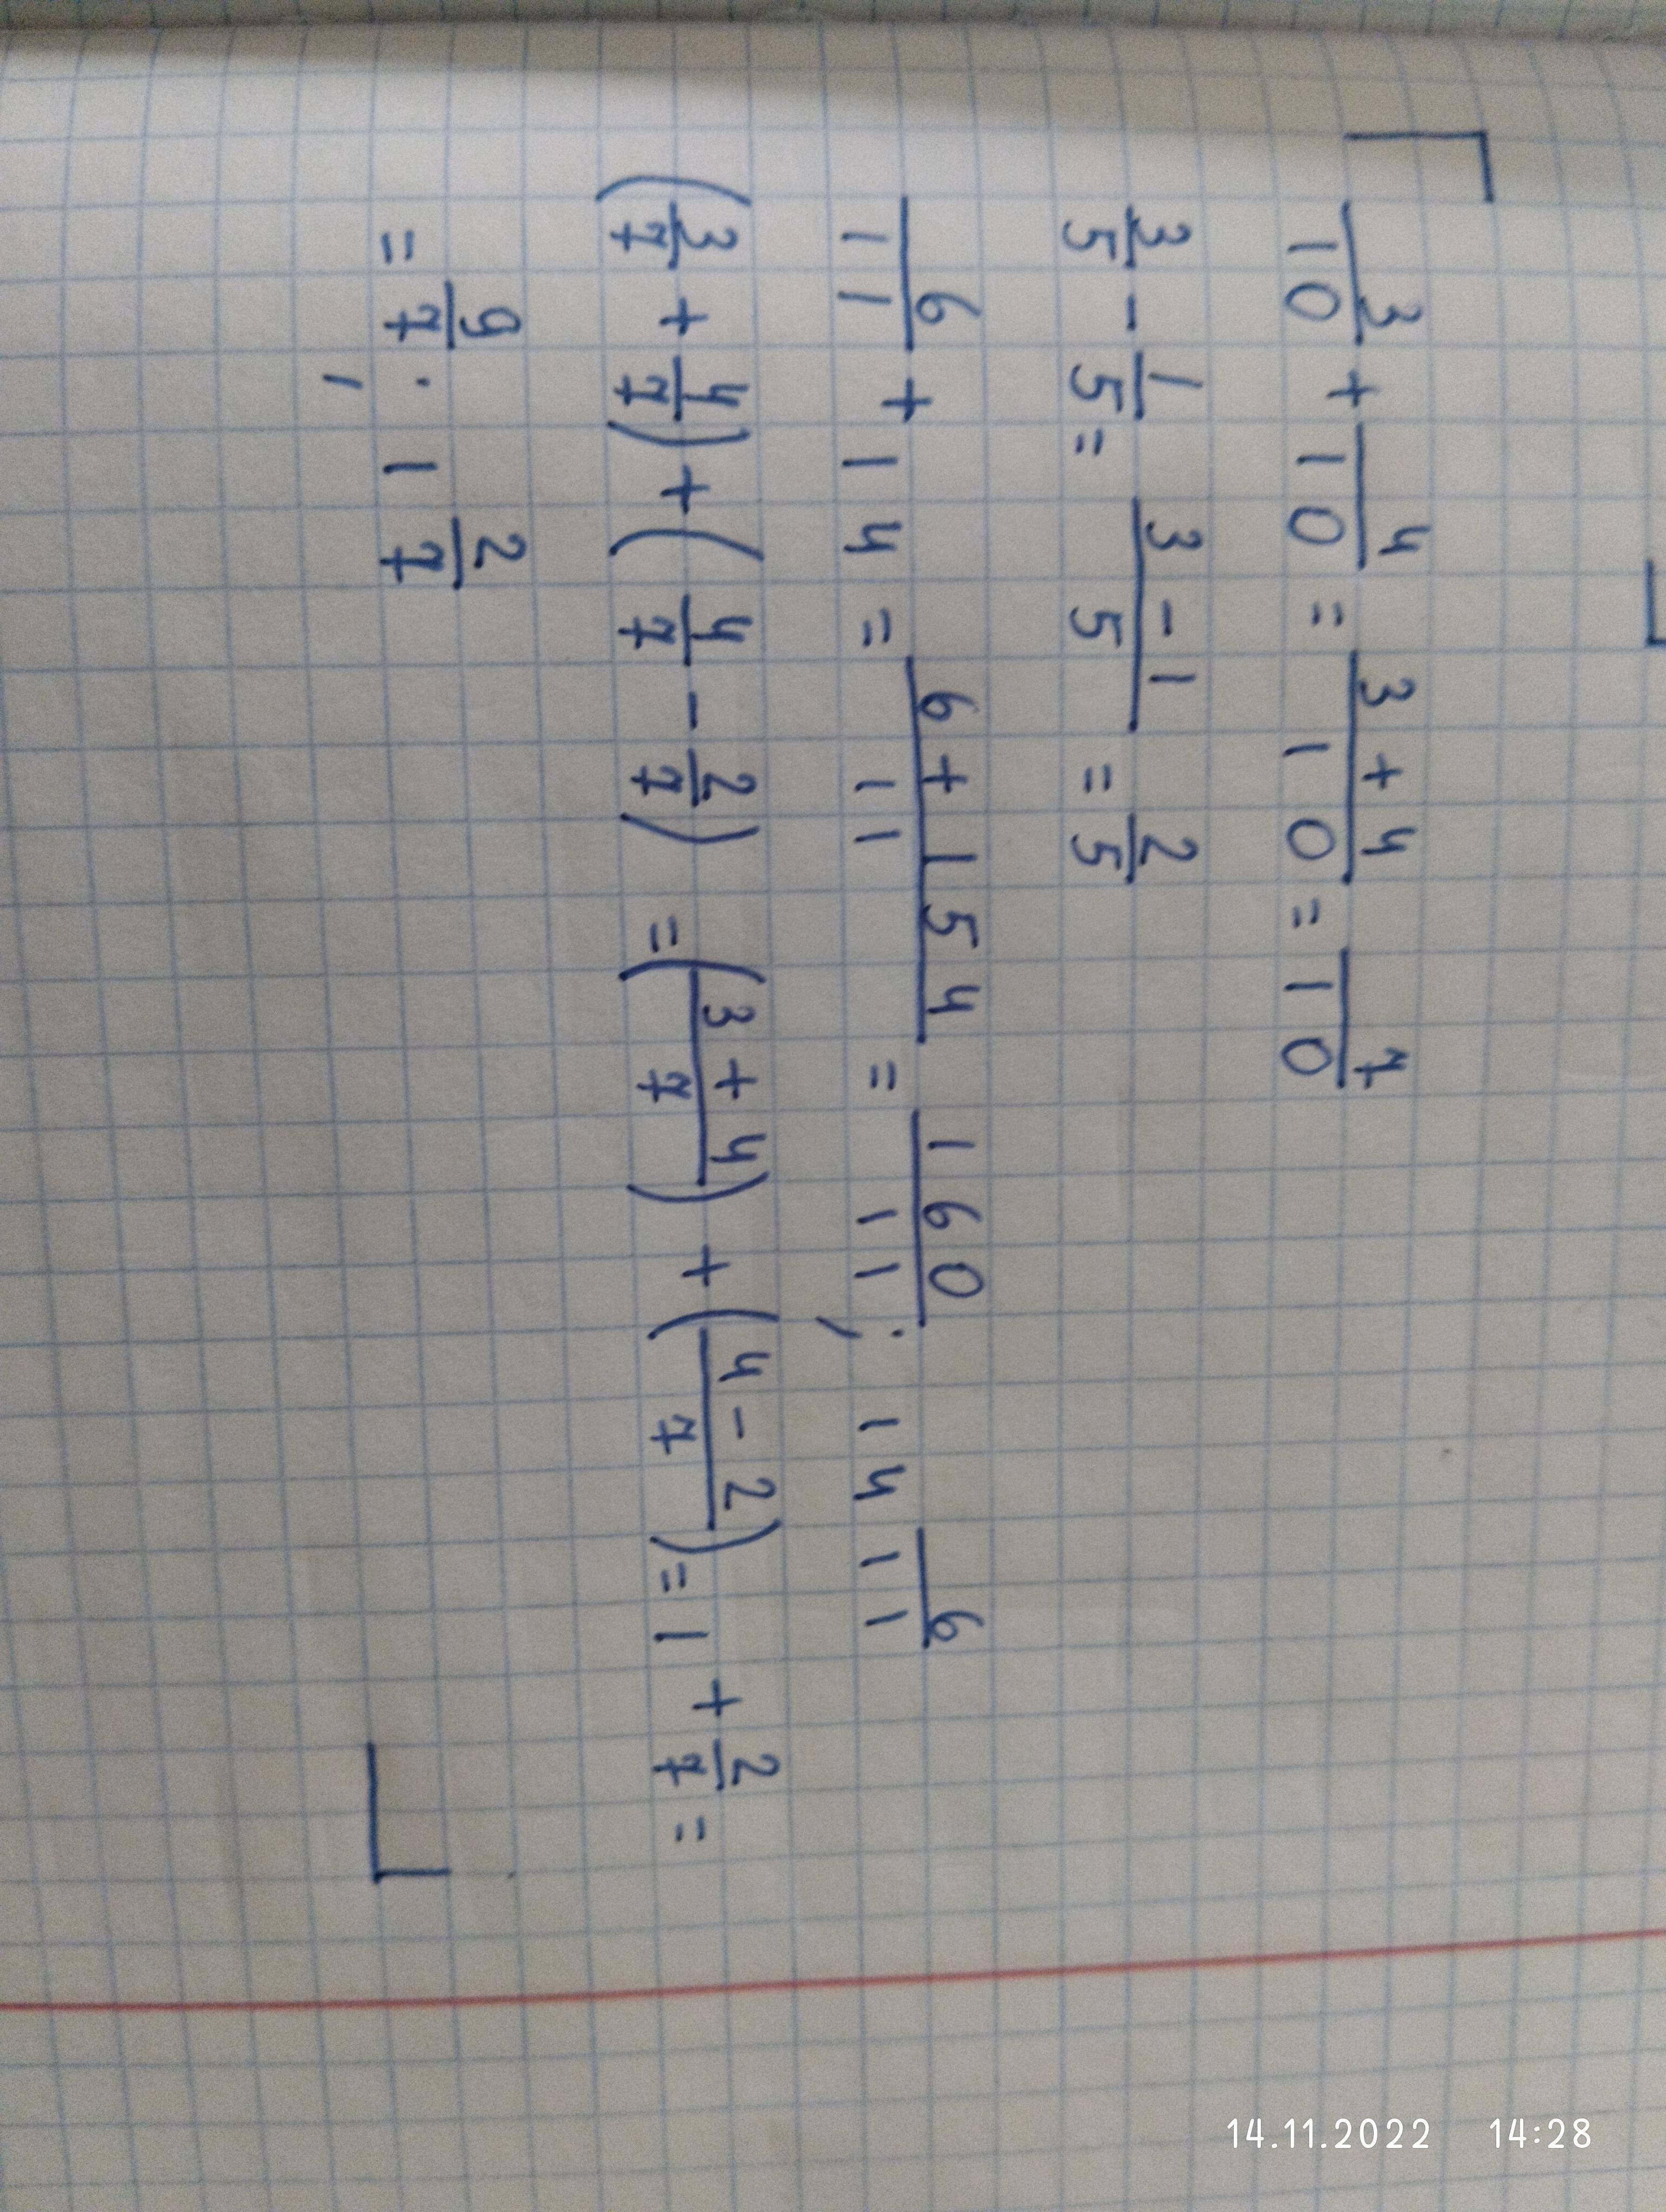 3/10 + 4/10 = 3+4/10 = 7/10
3/5 - 1/5 = 3-1/5 = 2/5
6/11 + 14 = 6+154/11 = 160/11 ; 14 6/11
(3/7 + 4/7) + (4/7 - 2/7) = (3+4/7) + (4-2/7) = 1 + 2/7 =
= 9/7 ; 1 2/7
14.11.2022 14:28